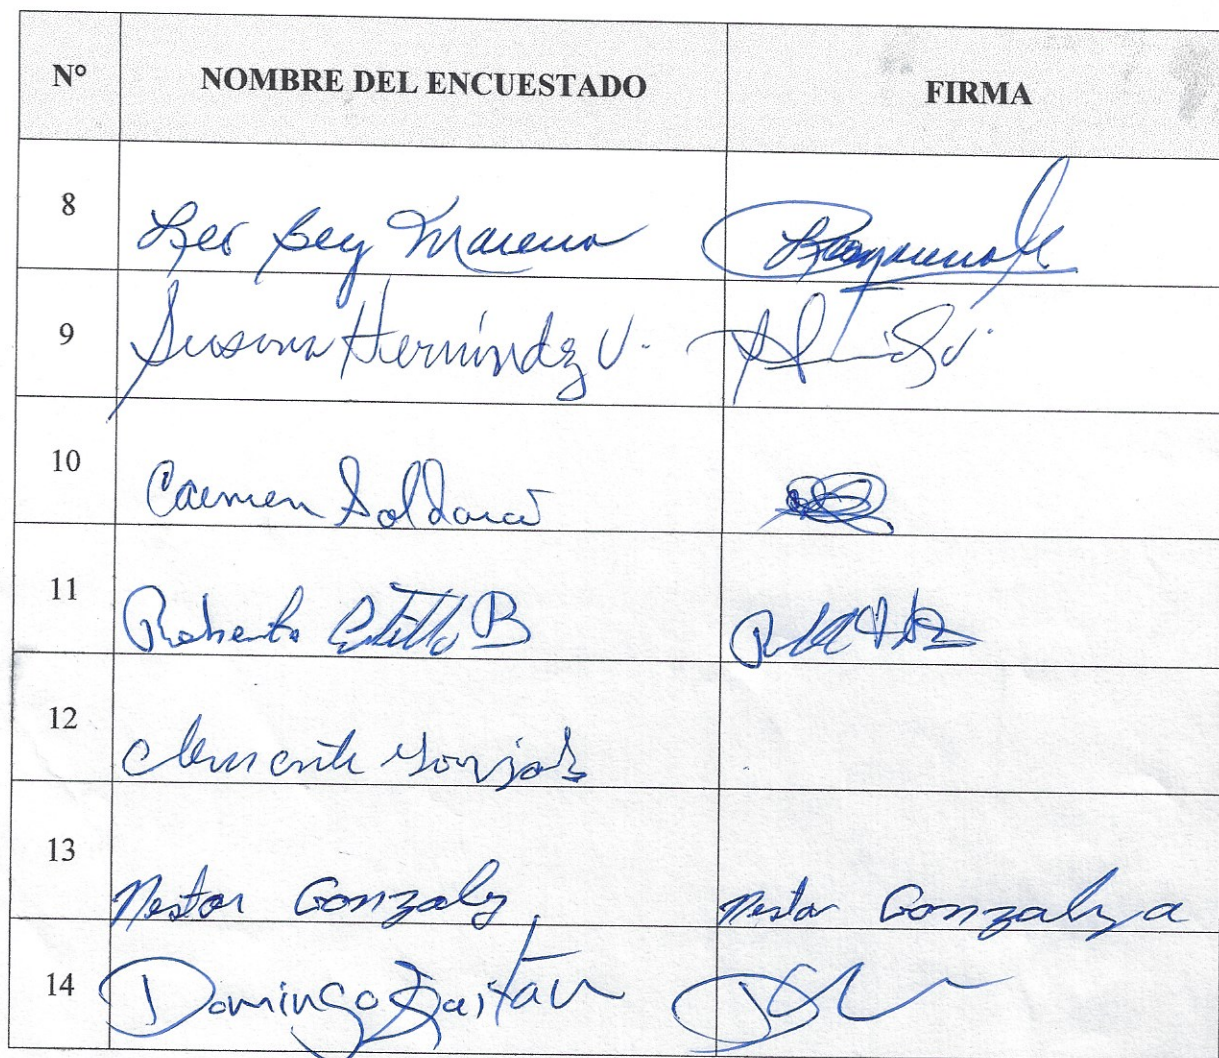 N° NOMBRE DEL ENCUESTADO FIRMA
8 Moreno
9 Susana Hernández V.
10 Carmen Saldaña
11 Roberto Castillo B
12 Clemente González
13 Nestor Gonzalez Nestor Gonzalez a
14 Domingo Gaitan